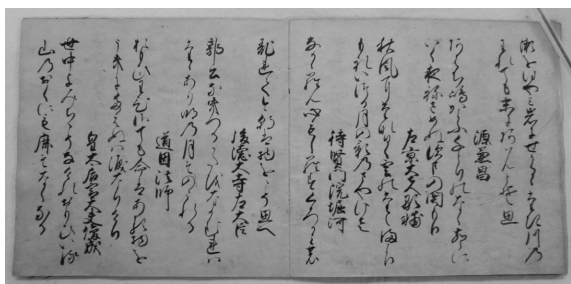 瀬をはやみ岩にせかるゝ瀧川の
われても末にあはんとそ思
源兼昌
あはち嶋かよふ千とりのなく声に
いく夜ねさめぬすまの関もり
左京大夫顕輔
秋風にたなひく雲のたえまより
もれいつる月の影のさやけさ
待賢門院堀河
なかゝらん心もしらすくろかみの
乱れてけさは物をこそ思へ
後徳大寺左大臣
郭公なきつるかたをなかむれは
たゝあり明の月そのこれる
道因法師
おもひわひさても命はある物を
うきにたへぬは涙なりけり
皇太后宮大夫俊成
世中よみちこそなけれおもひいる
山のおくにも鹿そなくなる